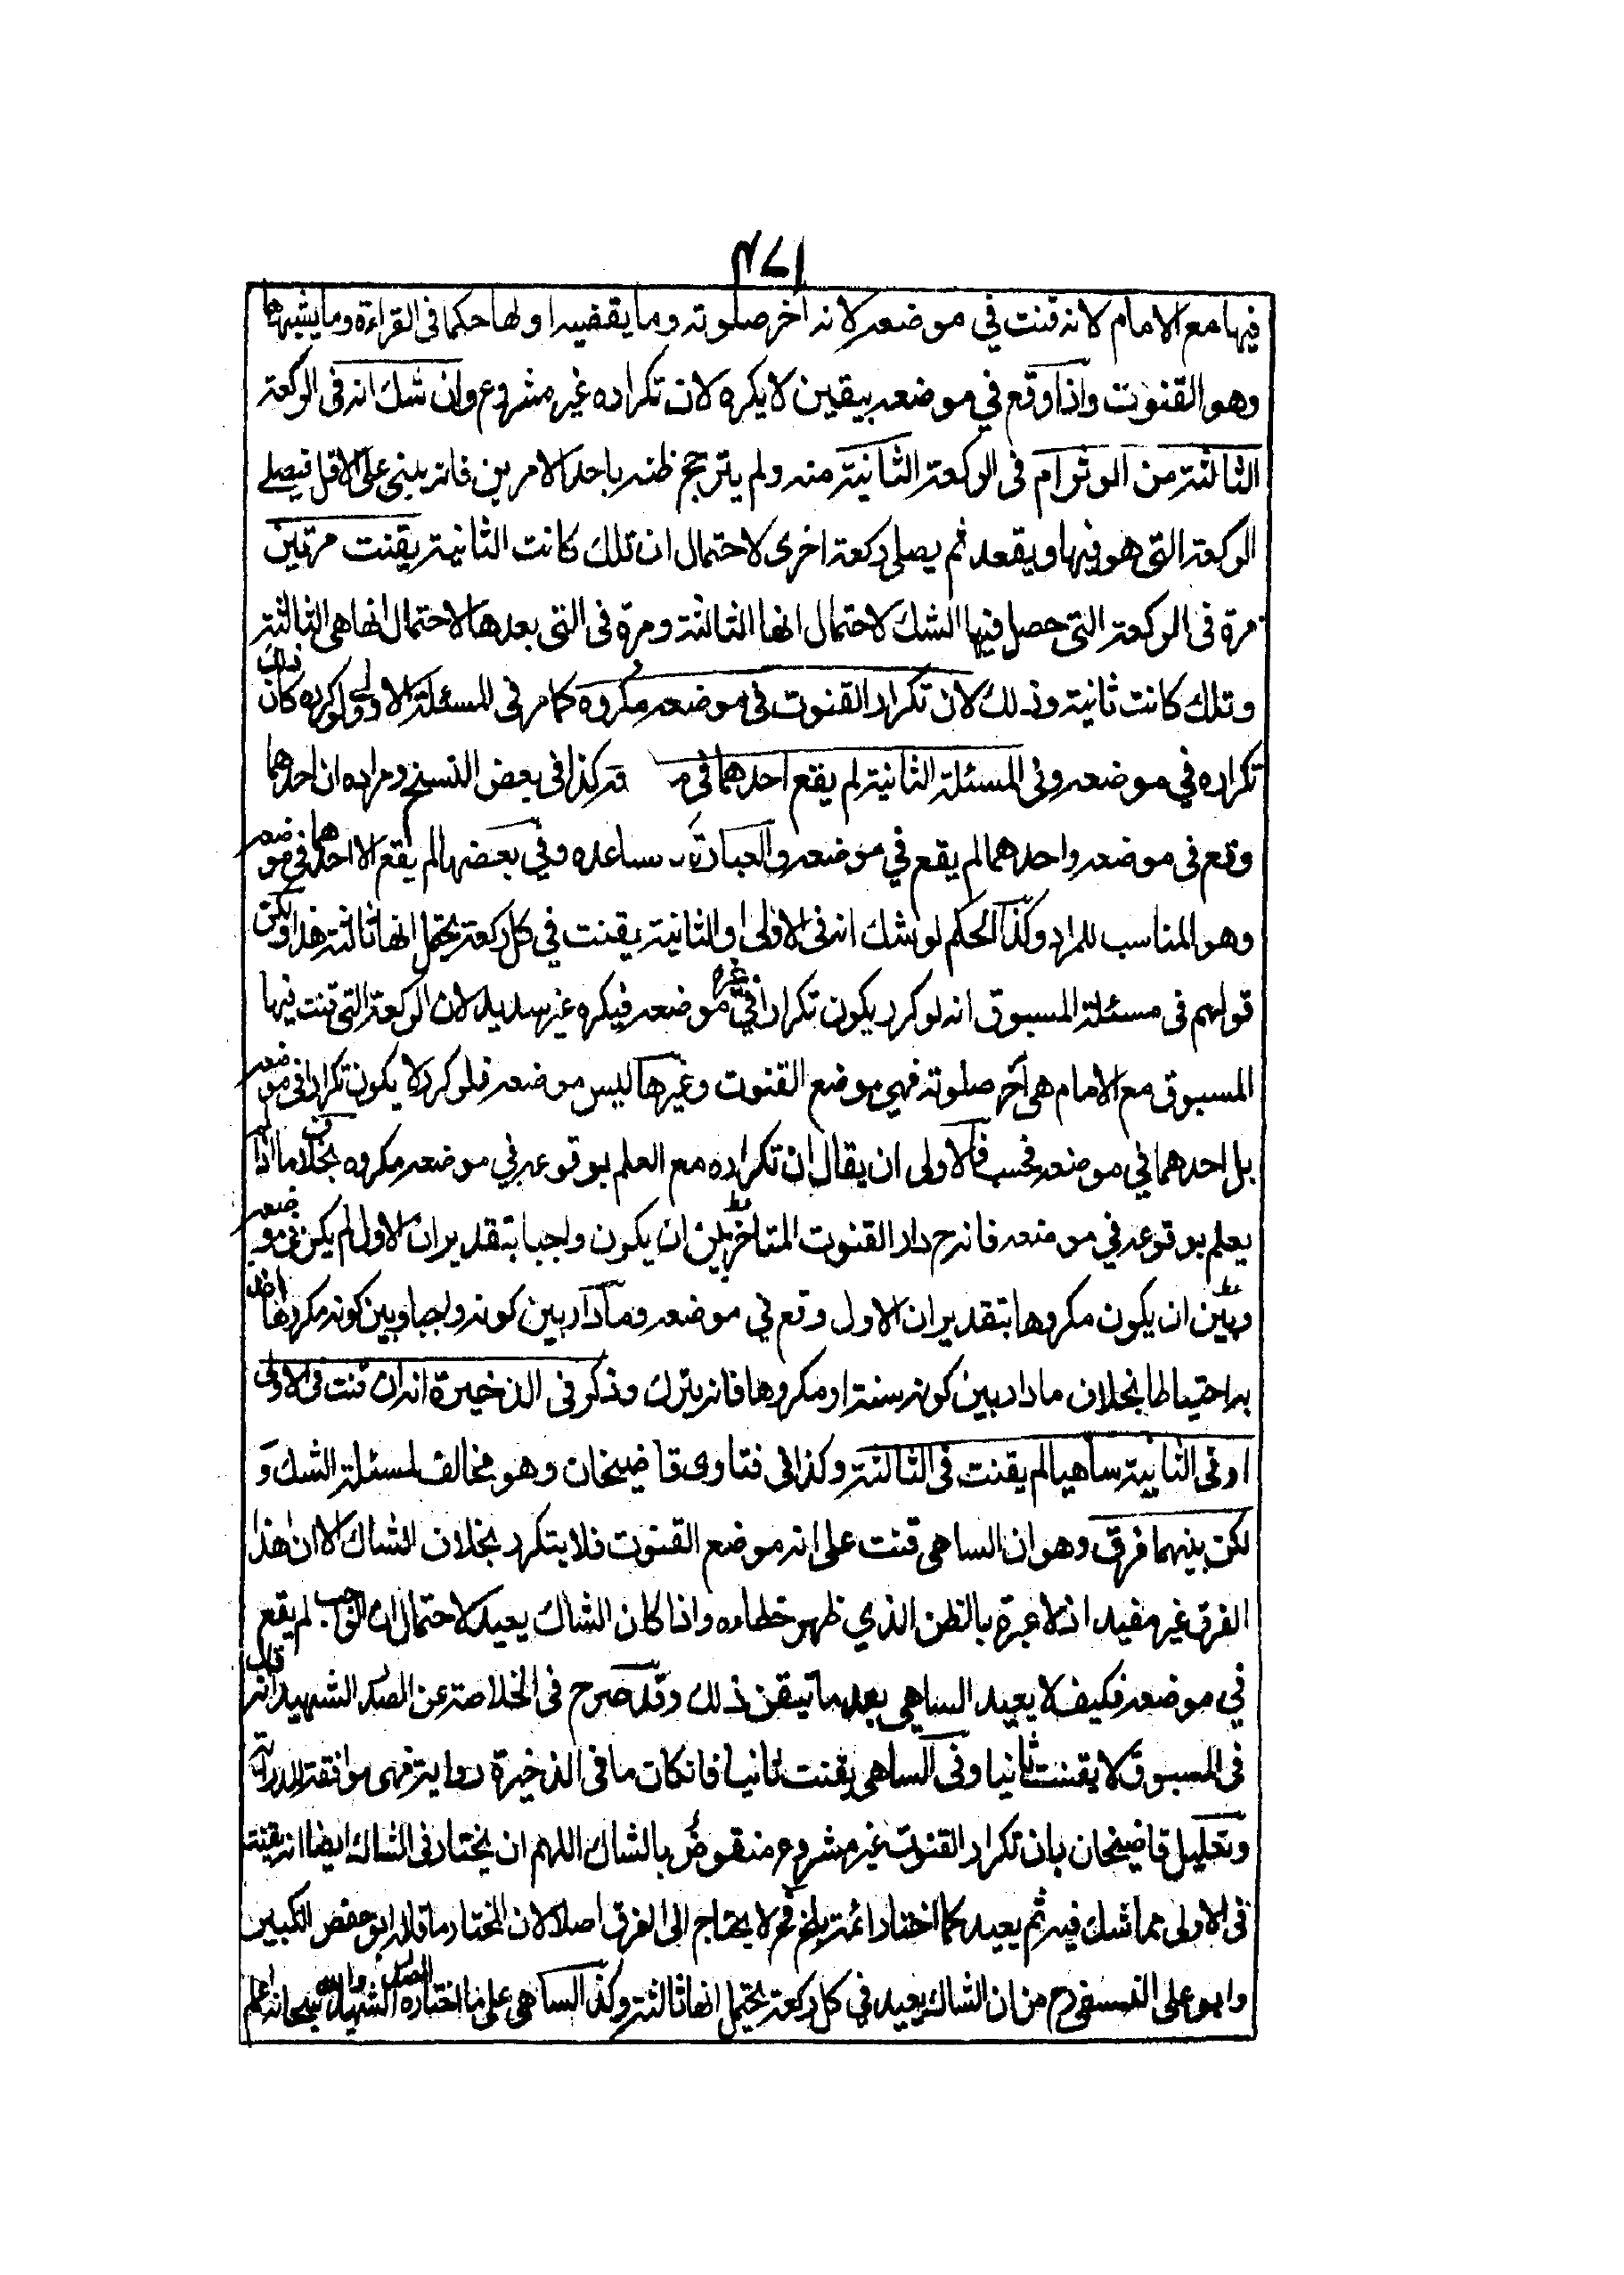 ٤٢١
فيها مع الامام لانه قنت في موضعه لانه آخر صلوته وما يقضيه اولها حكما في القراءة وما يشبهها
وهو القنوت واذا وقع في موضعه بيقين لا يكره لان تكراره غير مشروع وان شك انه في الركعة
الثالثة من الوتر ام في الركعة الثانية منه ولم يترجح ظنه باحد الامرين فانه يبني على الاقل فيصلي
الركعة التي هو فيها ويقعد ثم يصلي ركعة اخرى لاحتمال ان تلك كانت الثانية يقنت مرتين
مرة في الركعة التي حصل فيها الشك لاحتمال انها الثالثة ومرة في التي بعدها لاحتمال انها هي الثالثة
وتلك كانت ثانية وذلك لان تكرار القنوت في موضعه مكروه كما مر في المسئلة الاولى ولو كرره كان
تكراره في موضعه وفي المسئلة الثانية لم يقع احدهما في كذا في بعض النسخ ومراده ان احدهما
وقع في موضعه واحدهما لم يقع في موضعه والعبارة تساعده وفي بعضها لم يقع الا احدهما في موضعه
وهو المناسب للمراد وكذا الحكم لو شك انه في الاولى او الثانية يقنت في كل ركعة يحتمل انها ثالثة هذا ولكن
قولهم في مسئلة المسبوق انه لو كرر يكون تكرارا في غير موضعه فيكره غير سديد لان الركعة التي قنت فيها
المسبوق مع الامام هي آخر صلوته فهي موضع القنوت وغيرها ليس موضعه فلو كرر لا يكون تكرارا في موضعه
بل احدهما في موضعه فحسب فالاولى ان يقال ان تكراره مع العلم بوقوعه في موضعه مكروه بخلاف ما اذا لم
يعلم بوقوعه في موضعه فانه ح دار القنوت المتاخر بين ان يكون واجبا بتقدير ان الاول لم يكن في موضعه
وبين ان يكون مكروها بتقدير ان الاول وقع في موضعه وما دار بين كونه واجبا وبين كونه مكروها
به احتياطا بخلاف ما دار بين كونه سنة او مكروها فانه يترك وذكر في الذخيرة انه ان قنت في الاولى
او في الثانية ساهيا لم يقنت في الثالثة وكذا في فتاوى قاضيخان وهو مخالف لمسئلة الشك و
لكن بينهما فرق وهو ان الساهي قنت على انه موضع القنوت فلا يتكرر بخلاف الشاك الا ان هذا
الفرق غير مفيد اذ لا عبرة بالظن الذي ظهر خطاءه واذا كان الشاك يعيد لاحتمال ان الواجب لم يقع
في موضعه فكيف لا يعيد الساهي بعد ما تيقن ذلك وقد صرح في الخلاصة عن الصدر الشهيد انه قال
في المسبوق لا يقنت ثانيا وفي الساهي يقنت ثانيا فان كان ما في الذخيرة رواية فهي موافقة للدراية
وتعليل قاضيخان بان تكرار القنوت غير مشروع منقوض بالشاك اللهم ان يختار في الشاك ايضا انه يقنت
في الاولى مما شك فيه ثم يعيد كما اختار ائمة بلخ فح لا يحتاج الى الفرق اصلا لان المختار ما قاله ابو حفص الكبير
وابو علي النسفي رح من ان الشاك يعيد في كل ركعة يحتمل انها ثالثة وكذا الساهي على ما اختاره الصدر الشهيد والله سبحانه اعلم